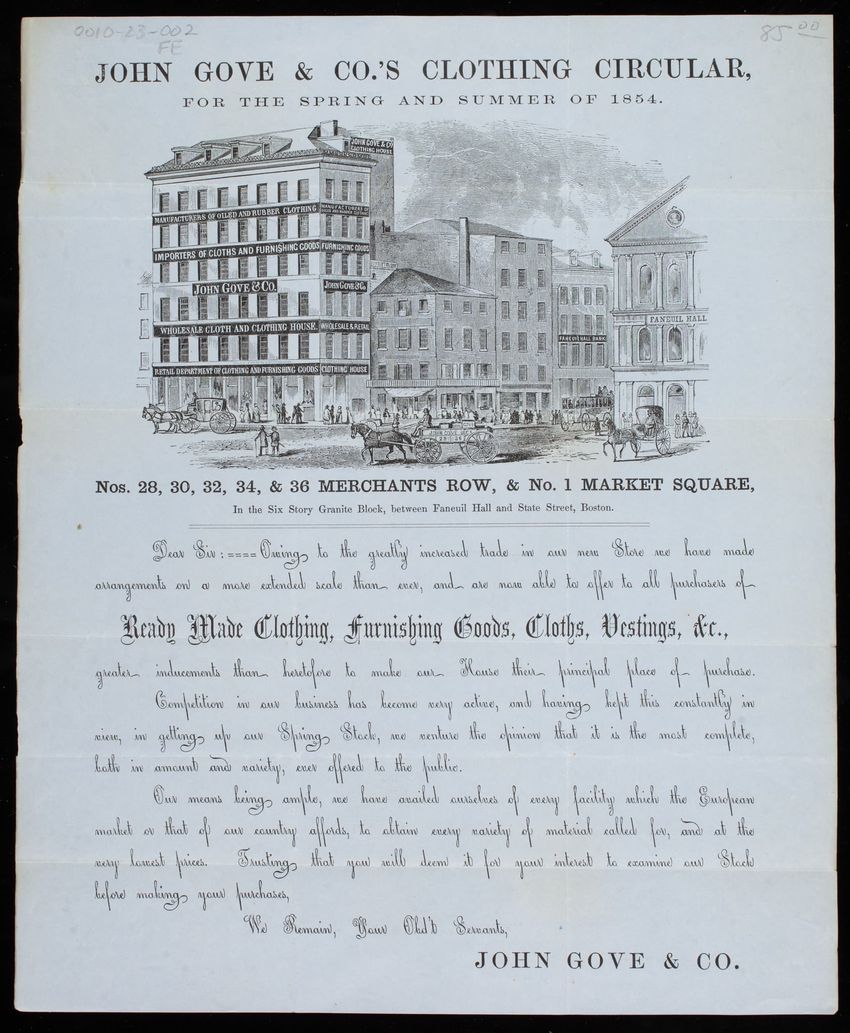 0010-23-002
FE
85 00
JOHN GOVE & CO.'S CLOTHING CIRCULAR,
FOR THE SPRING AND SUMMER OF 1854.
JOHN GOVE & CO
CLOTHING HOUSE
MANUFACTURERS OF OILED AND RUBBER CLOTHING
MANUFACTURERS OF
IMPORTERS OF CLOTHS AND FURNISHING GOODS
FURNISHING GOODS
JOHN GOVE & CO.
JOHN GOVE & Co.
WHOLESALE CLOTH AND CLOTHING HOUSE.
WHOLESALE & RETAIL
RETAIL DEPARTMENT OF CLOTHING AND FURNISHING GOODS
CLOTHING HOUSE
FANEUIL HALL BANK
FANEUIL HALL
Nos. 28, 30, 32, 34, & 36 MERCHANTS ROW, & No. 1 MARKET SQUARE,
In the Six Story Granite Block, between Faneuil Hall and State Street, Boston.
Dear Sir : ==== Owing to the greatly increased trade in our new Store we have made
arrangements on a more extended scale than ever, and are now able to offer to all purchasers of
Ready Made Clothing, Furnishing Goods, Cloths, Vestings, &c.,
greater inducements than heretofore to make our House their principal place of purchase.
Competition in our business has become very active, and having kept this constantly in
view, in getting up our Spring Stock, we venture the opinion that it is the most complete,
both in amount and variety, ever offered to the public.
Our means being ample, we have availed ourselves of every facility which the European
market or that of our country affords, to obtain every variety of material called for, and at the
very lowest prices. Trusting that you will deem it for your interest to examine our Stock
before making your purchases,
We Remain, Your Obd't Servants,
JOHN GOVE & CO.